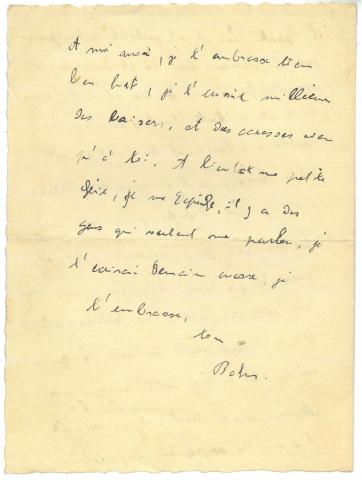 A moi aussi, je t'embrasse bien
bien fort, je t'envoie millions
des baisers, et des caresses rien
qu'à toi. A bientôt ma petite
je me dépêche, il y a des
gens qui veulent me parler, je
t'écrirai demain encore, je
t'embrasse,
ton